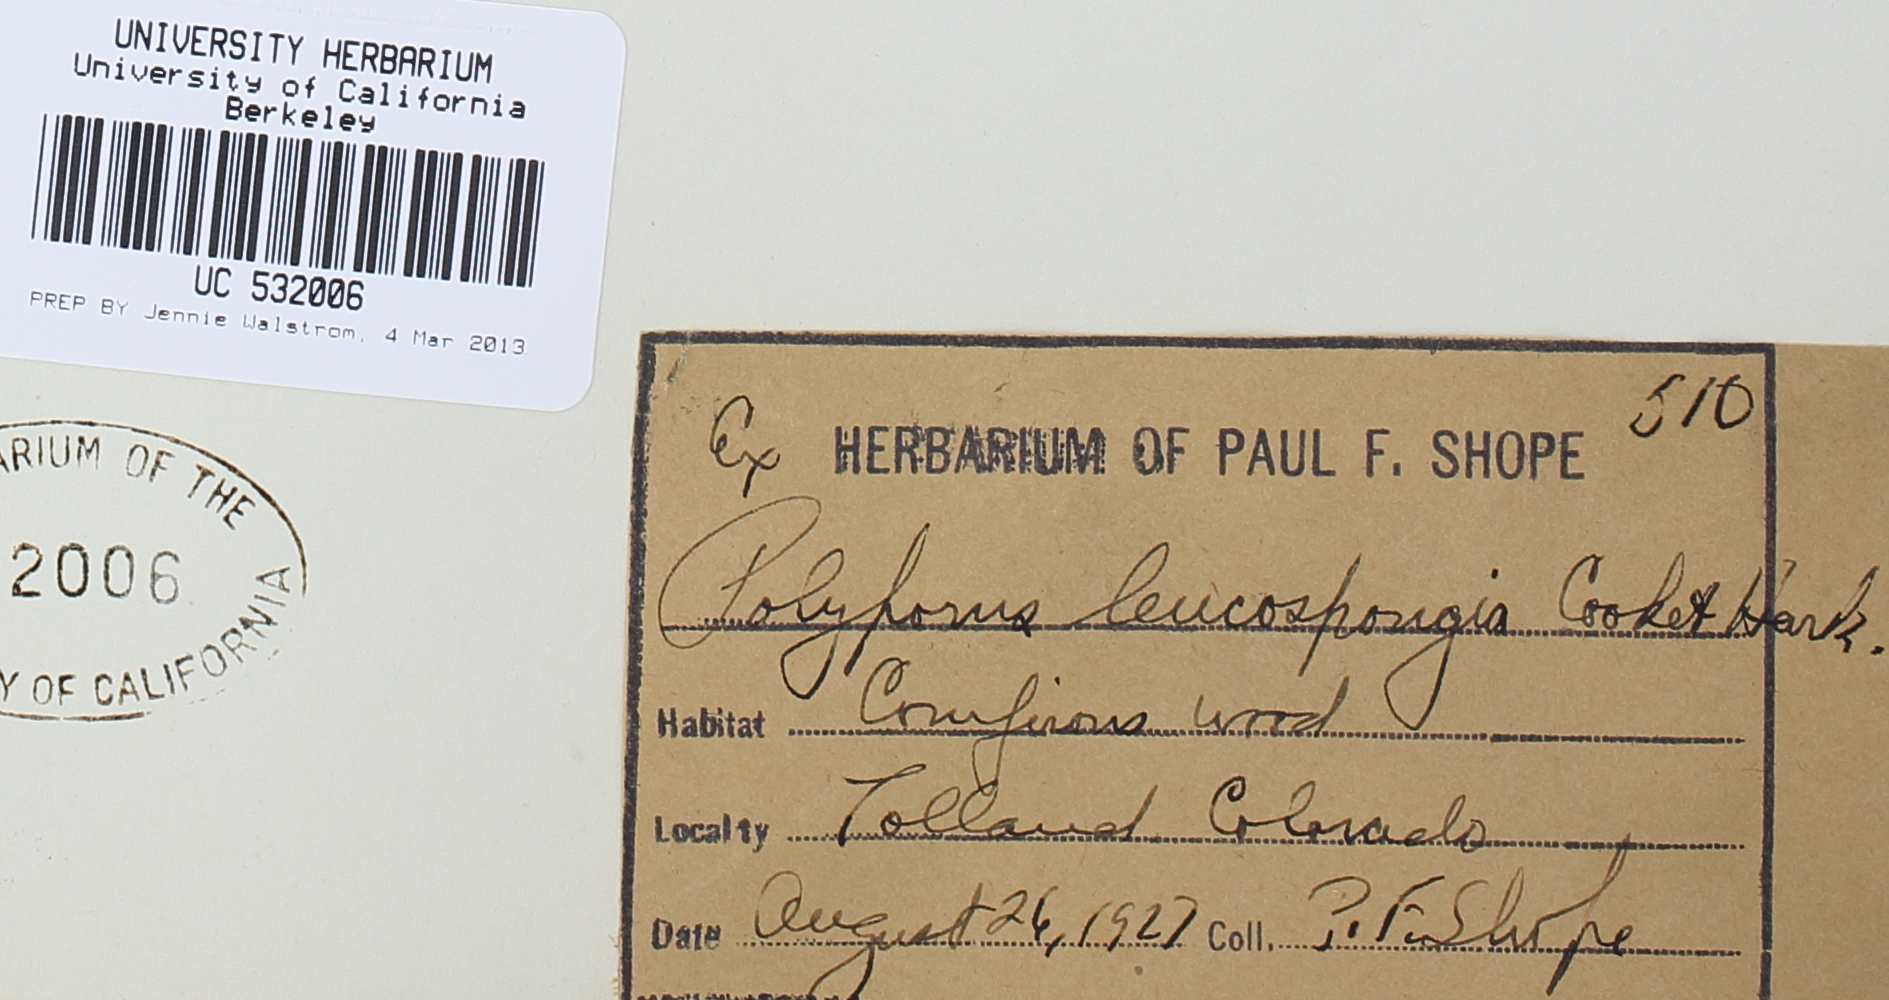 UNIVERSITY HERBARIUM
University of California
Berkeley
UC 532006
PREP BY Jennie Walstrom, 4 Mar 2013
ARIUM OF THE
2006
Y OF CALIFORNIA
510
Ex HERBARIUM OF PAUL F. SHOPE
Polyporus leucospongia Cooke & Hark.
Habitat Coniferous wood
Locality Tolland Colorado
Date August 26, 1927 Coll. P. F. Shope